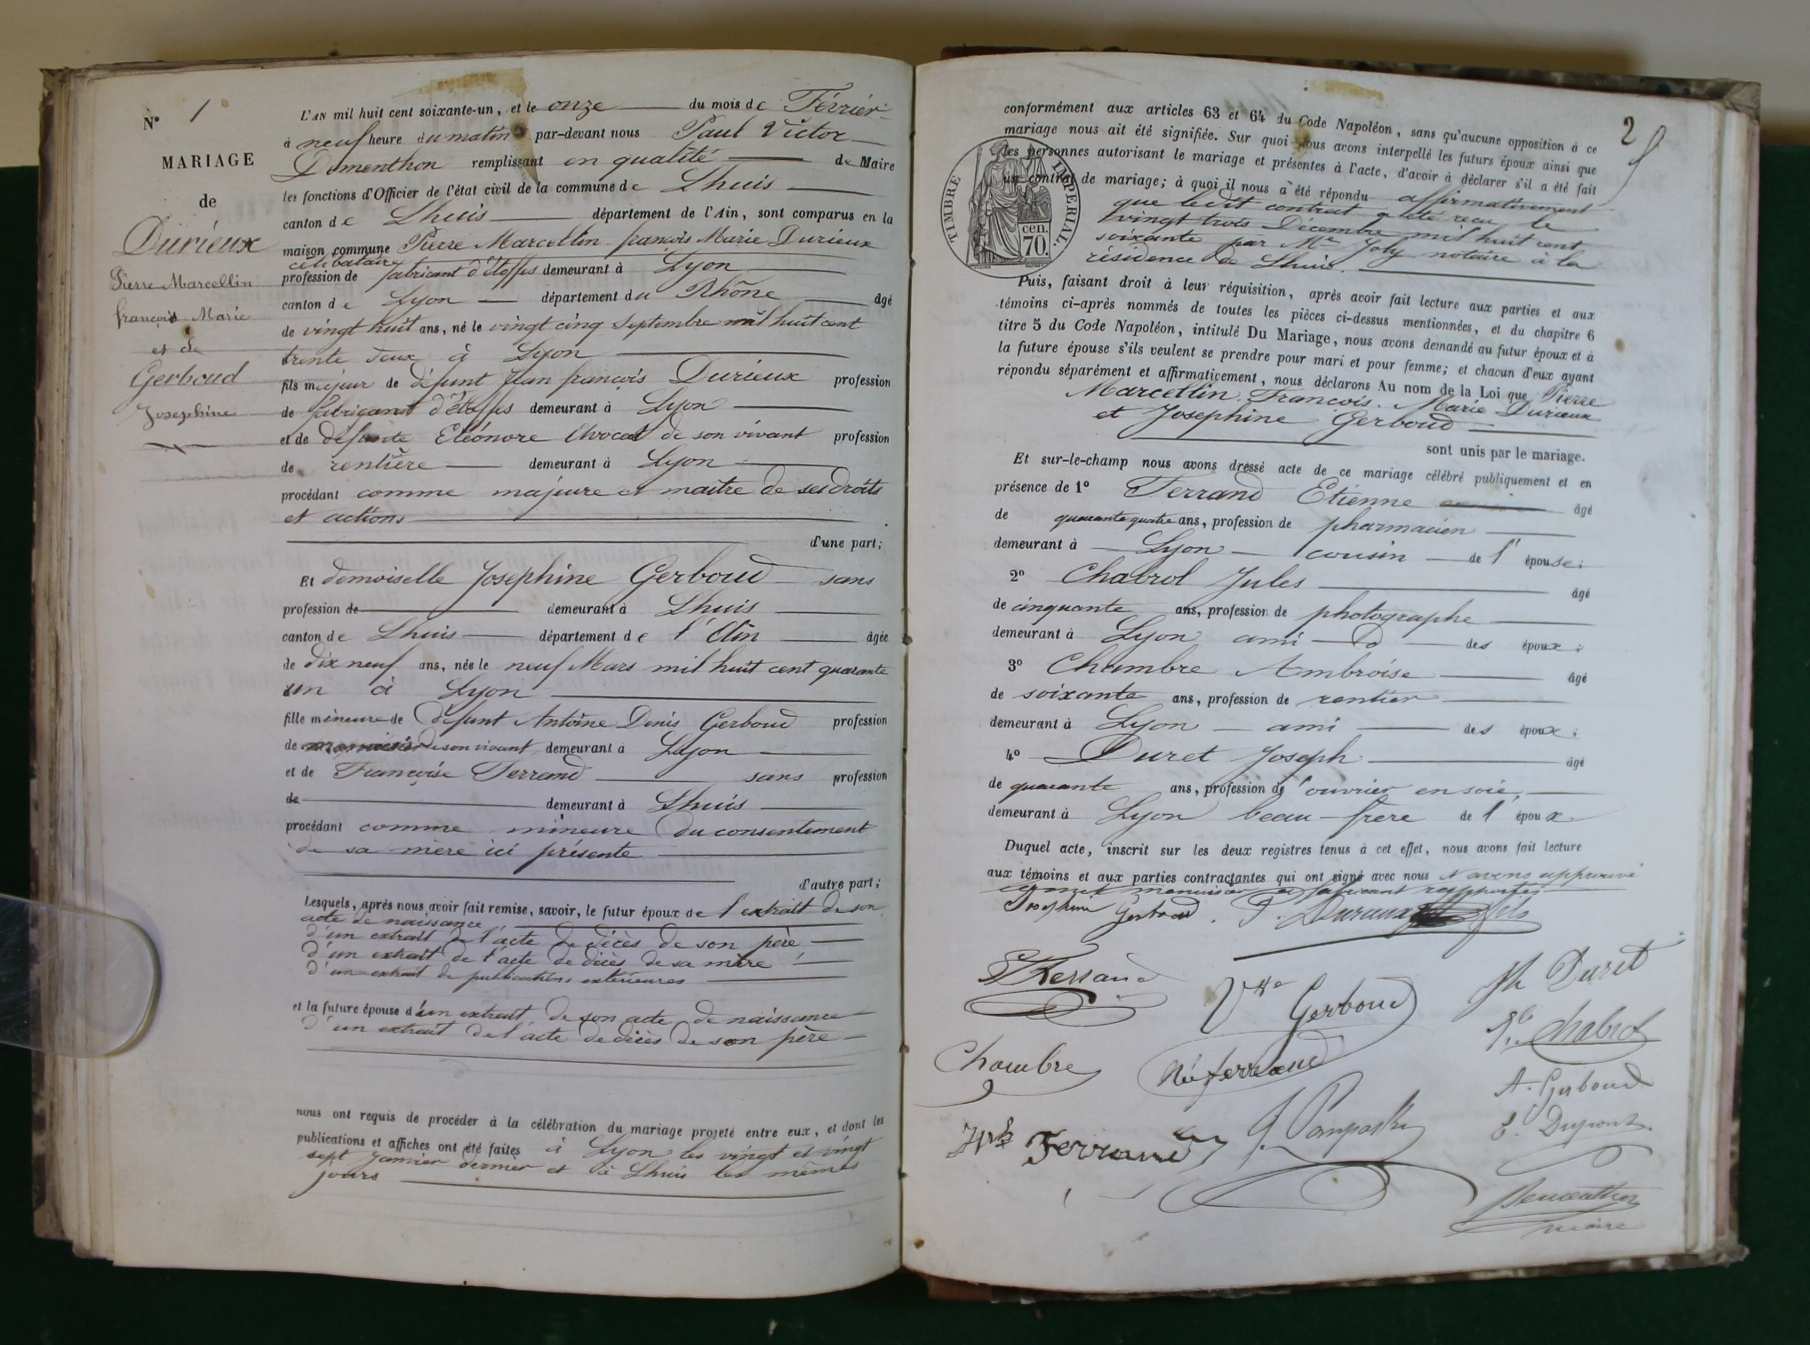 N° 1
MARIAGE
de
Durieux
Pierre Marcellin
françois Marie
et de
Gerboud
Josephine
L'AN mil huit cent soixante-un, et le onze du mois de Février
à neuf heure du matin par-devant nous Paul Victor
Dementhon remplissant en qualité de Maire
les fonctions d'Officier de l'état civil de la commune de Lhuis
canton de Lhuis département de l'Ain, sont comparus en la
maison commune Pierre Marcellin françois Marie Durieux
célibataire
profession de fabricant d'étoffes demeurant à Lyon
canton de Lyon département du Rhône âgé
de vingt huit ans, né le vingt cinq Septembre mil huit cent
trente deux à Lyon
fils majeur de défunt Jean françois Durieux profession
de fabricant d'étoffes demeurant à Lyon
et de défunte Eléonore Avocat de son vivant profession
de rentière demeurant à Lyon
procédant comme majeure et maitre de ses droits
et actions
d'une part;
Et demoiselle Josephine Gerboud sans
profession de demeurant à Lhuis
canton de Lhuis département de l'Ain âgée
de dix neuf ans, née le neuf Mars mil huit cent quarante
un à Lyon
fille mineure de défunt Antoine Denis Gerboud profession
de de son vivant demeurant à Lyon
et de Françoise Ferrand sans profession
de demeurant à Lhuis
procédant comme mineure du consentement
de sa mère ici présente
d'autre part;
Lesquels, après nous avoir fait remise, savoir, le futur époux de l'extrait de son
acte de naissance,
d'un extrait de l'acte de décès de son père
d'un extrait de l'acte de décès de sa mère
d'un extrait de publications extérieures
et la future épouse d'un extrait de son acte de naissance
d'un extrait de l'acte de décès de son père
nous ont requis de procéder à la célébration du mariage projeté entre eux, et dont les
publications et affiches ont été faites à Lyon les vingt et vingt
sept Janvier dernier et à Lhuis les mêmes
jours
2
conformément aux articles 63 et 64 du Code Napoléon, sans qu'aucune opposition à ce
mariage nous ait été signifiée. Sur quoi nous avons interpellé les futurs époux ainsi que
les personnes autorisant le mariage et présentes à l'acte, d'avoir à déclarer s'il a été fait
un contrat de mariage; à quoi il nous a été répondu affirmativement
que ledit contrat a été reçu le
vingt trois Décembre mil huit cent
soixante par Me Joly notaire à la
résidence de Lhuis
TIMBRE IMPERIAL.
cen.
70.
Puis, faisant droit à leur réquisition, après avoir fait lecture aux parties et aux
témoins ci-après nommés de toutes les pièces ci-dessus mentionnées, et du chapitre 6
titre 5 du Code Napoléon, intitulé Du Mariage, nous avons demandé au futur époux et à
la future épouse s'ils veulent se prendre pour mari et pour femme; et chacun d'eux ayant
répondu séparément et affirmativement, nous déclarons Au nom de la Loi que Pierre
Marcellin François Marie Durieux
et Josephine Gerboud
sont unis par le mariage.
Et sur-le-champ nous avons dressé acte de ce mariage célébré publiquement et en
présence de 1° Ferrand Etienne âgé
de quarante quatre ans, profession de pharmacien
demeurant à Lyon cousin de l'épouse;
2° Chabrol Jules âgé
de cinquante ans, profession de photographe
demeurant à Lyon ami des époux;
3° Chambre Ambroise âgé
de soixante ans, profession de rentier
demeurant à Lyon ami des époux;
4° Duret Joseph âgé
de quarante ans, profession d'ouvrier en soie
demeurant à Lyon beau-frère de l'époux
Duquel acte, inscrit sur les deux registres tenus à cet effet, nous avons fait lecture
aux témoins et aux parties contractantes qui ont signé avec nous et avons approuvé
Josephine Gerboud P. Durieux fils
Ferrand
Vve Gerboud
Jh Duret
Chabrol
Chambre
Née ferrand
A. Gerboud
E. Dupont
Ferrand
Dementhon
maire